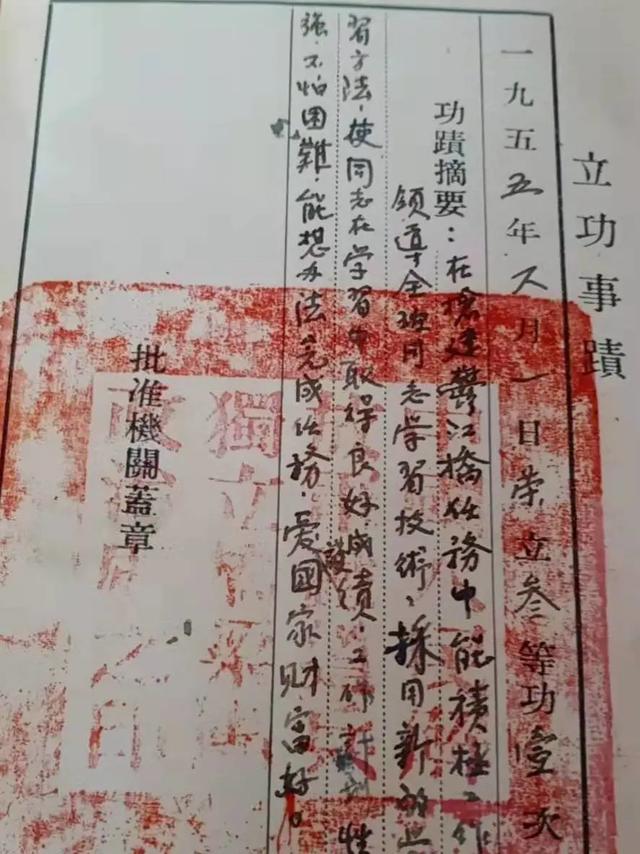 立功事蹟
一九五五年八月一日荣立叁等功壹次
功蹟摘要：在搶建鷹江橋任務中能積極工作
領導全班同志学習技術，採用新的学
習方法，使同志在学習中取得良好成绩，工作計划性
強，不怕困難，能想办法完成任務，爱護國家財富好。
批准機關蓋章
獨立